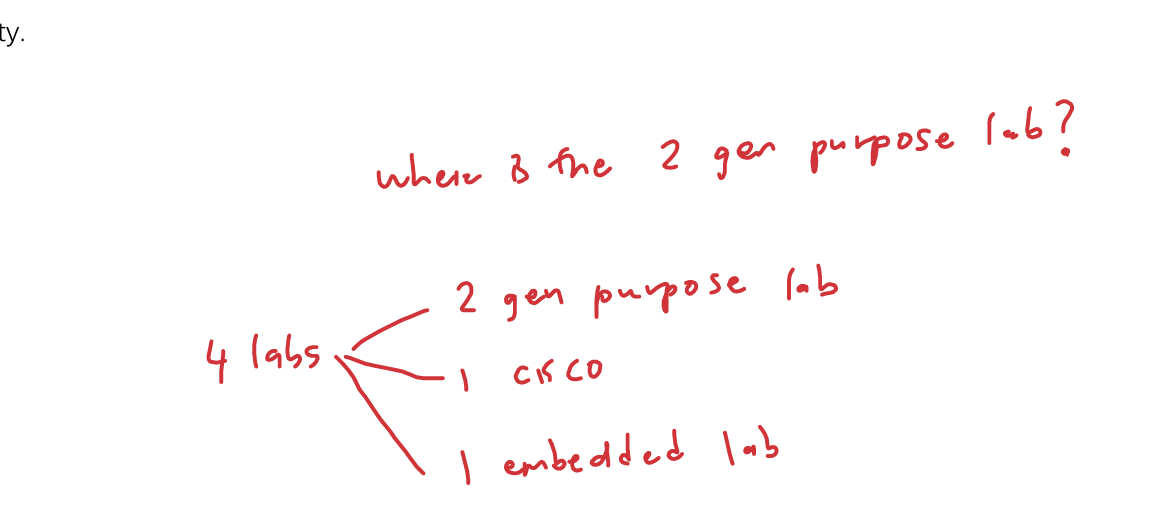 ty.
where is the 2 gen purpose lab?
2 gen purpose lab
4 labs
1 cisco
1 embedded lab